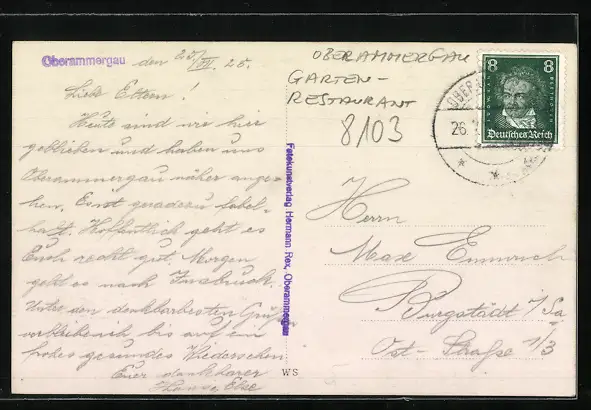 Oberammergau den 25/VII. 28.
Liebe Eltern!
Heute sind wir hier
geblieben und haben uns
Oberammergau näher ange-
hen. Ernst geradezu fabel-
haft. Hoffentlich geht es
Euch recht gut. Morgen
geht es nach Innsbruck.
Unter den denkbarbesten Grüßen
verbleibe ich bis auf ein
frohes gesundes Wiedersehen
Euer dankbarer
Hans, Else
OBERAMMERGAU
GARTEN-
RESTAURANT
8/103
Fotokunstverlag Hermann Rex, Oberammergau
WS
8 8
BEETHOVEN
Deutsches Reich
OBER
26.
Herrn
Max Emmrich
Burgstädt i/Sa
Ost-Straße 1/3